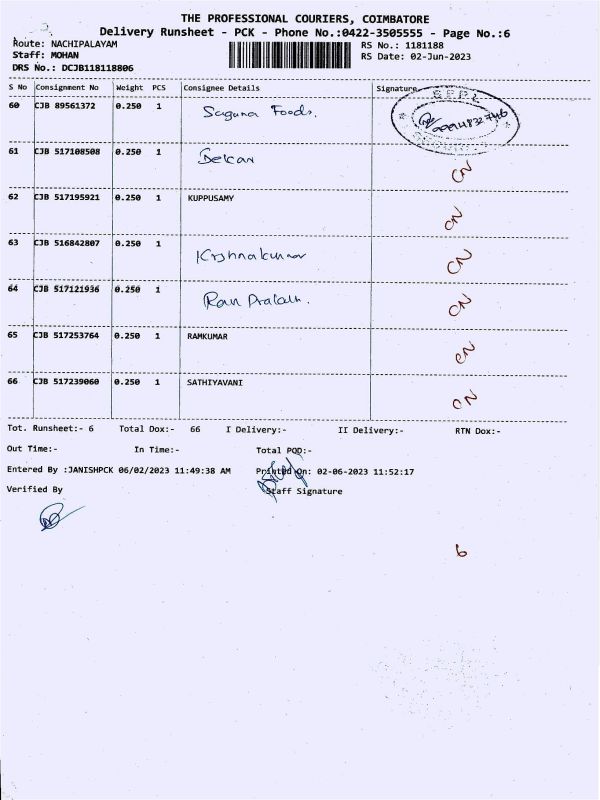 THE PROFESSIONAL COURIERS, COIMBATORE
Delivery Runsheet - PCK - Phone No.:0422-3505555 - Page No.:6
Route: NACHIPALAYAM
RS No.: 1181188
Staff: MOHAN
RS Date: 02-Jun-2023
DRS No.: DCJB118118806
S No Consignment No Weight PCS Consignee Details Signature
60 CJB 89561372 0.250 1 Saguna Foods.
61 CJB 517108508 0.250 1 Delcan CN
62 CJB 517195921 0.250 1 KUPPUSAMY CN
63 CJB 516842807 0.250 1 Krshnakumar CN
64 CJB 517121936 0.250 1 CN
65 CJB 517253764 0.250 1 RAMKUMAR CN
66 CJB 517239060 0.250 1 SATHIYAVANI CN
Tot. Runsheet:- 6 Total Dox:- 66 I Delivery:- II Delivery:- RTN Dox:-
Out Time:- In Time:- Total POD:-
Entered By :JANISHPCK 06/02/2023 11:49:38 AM Printed On: 02-06-2023 11:52:17
Verified By Staff Signature
6